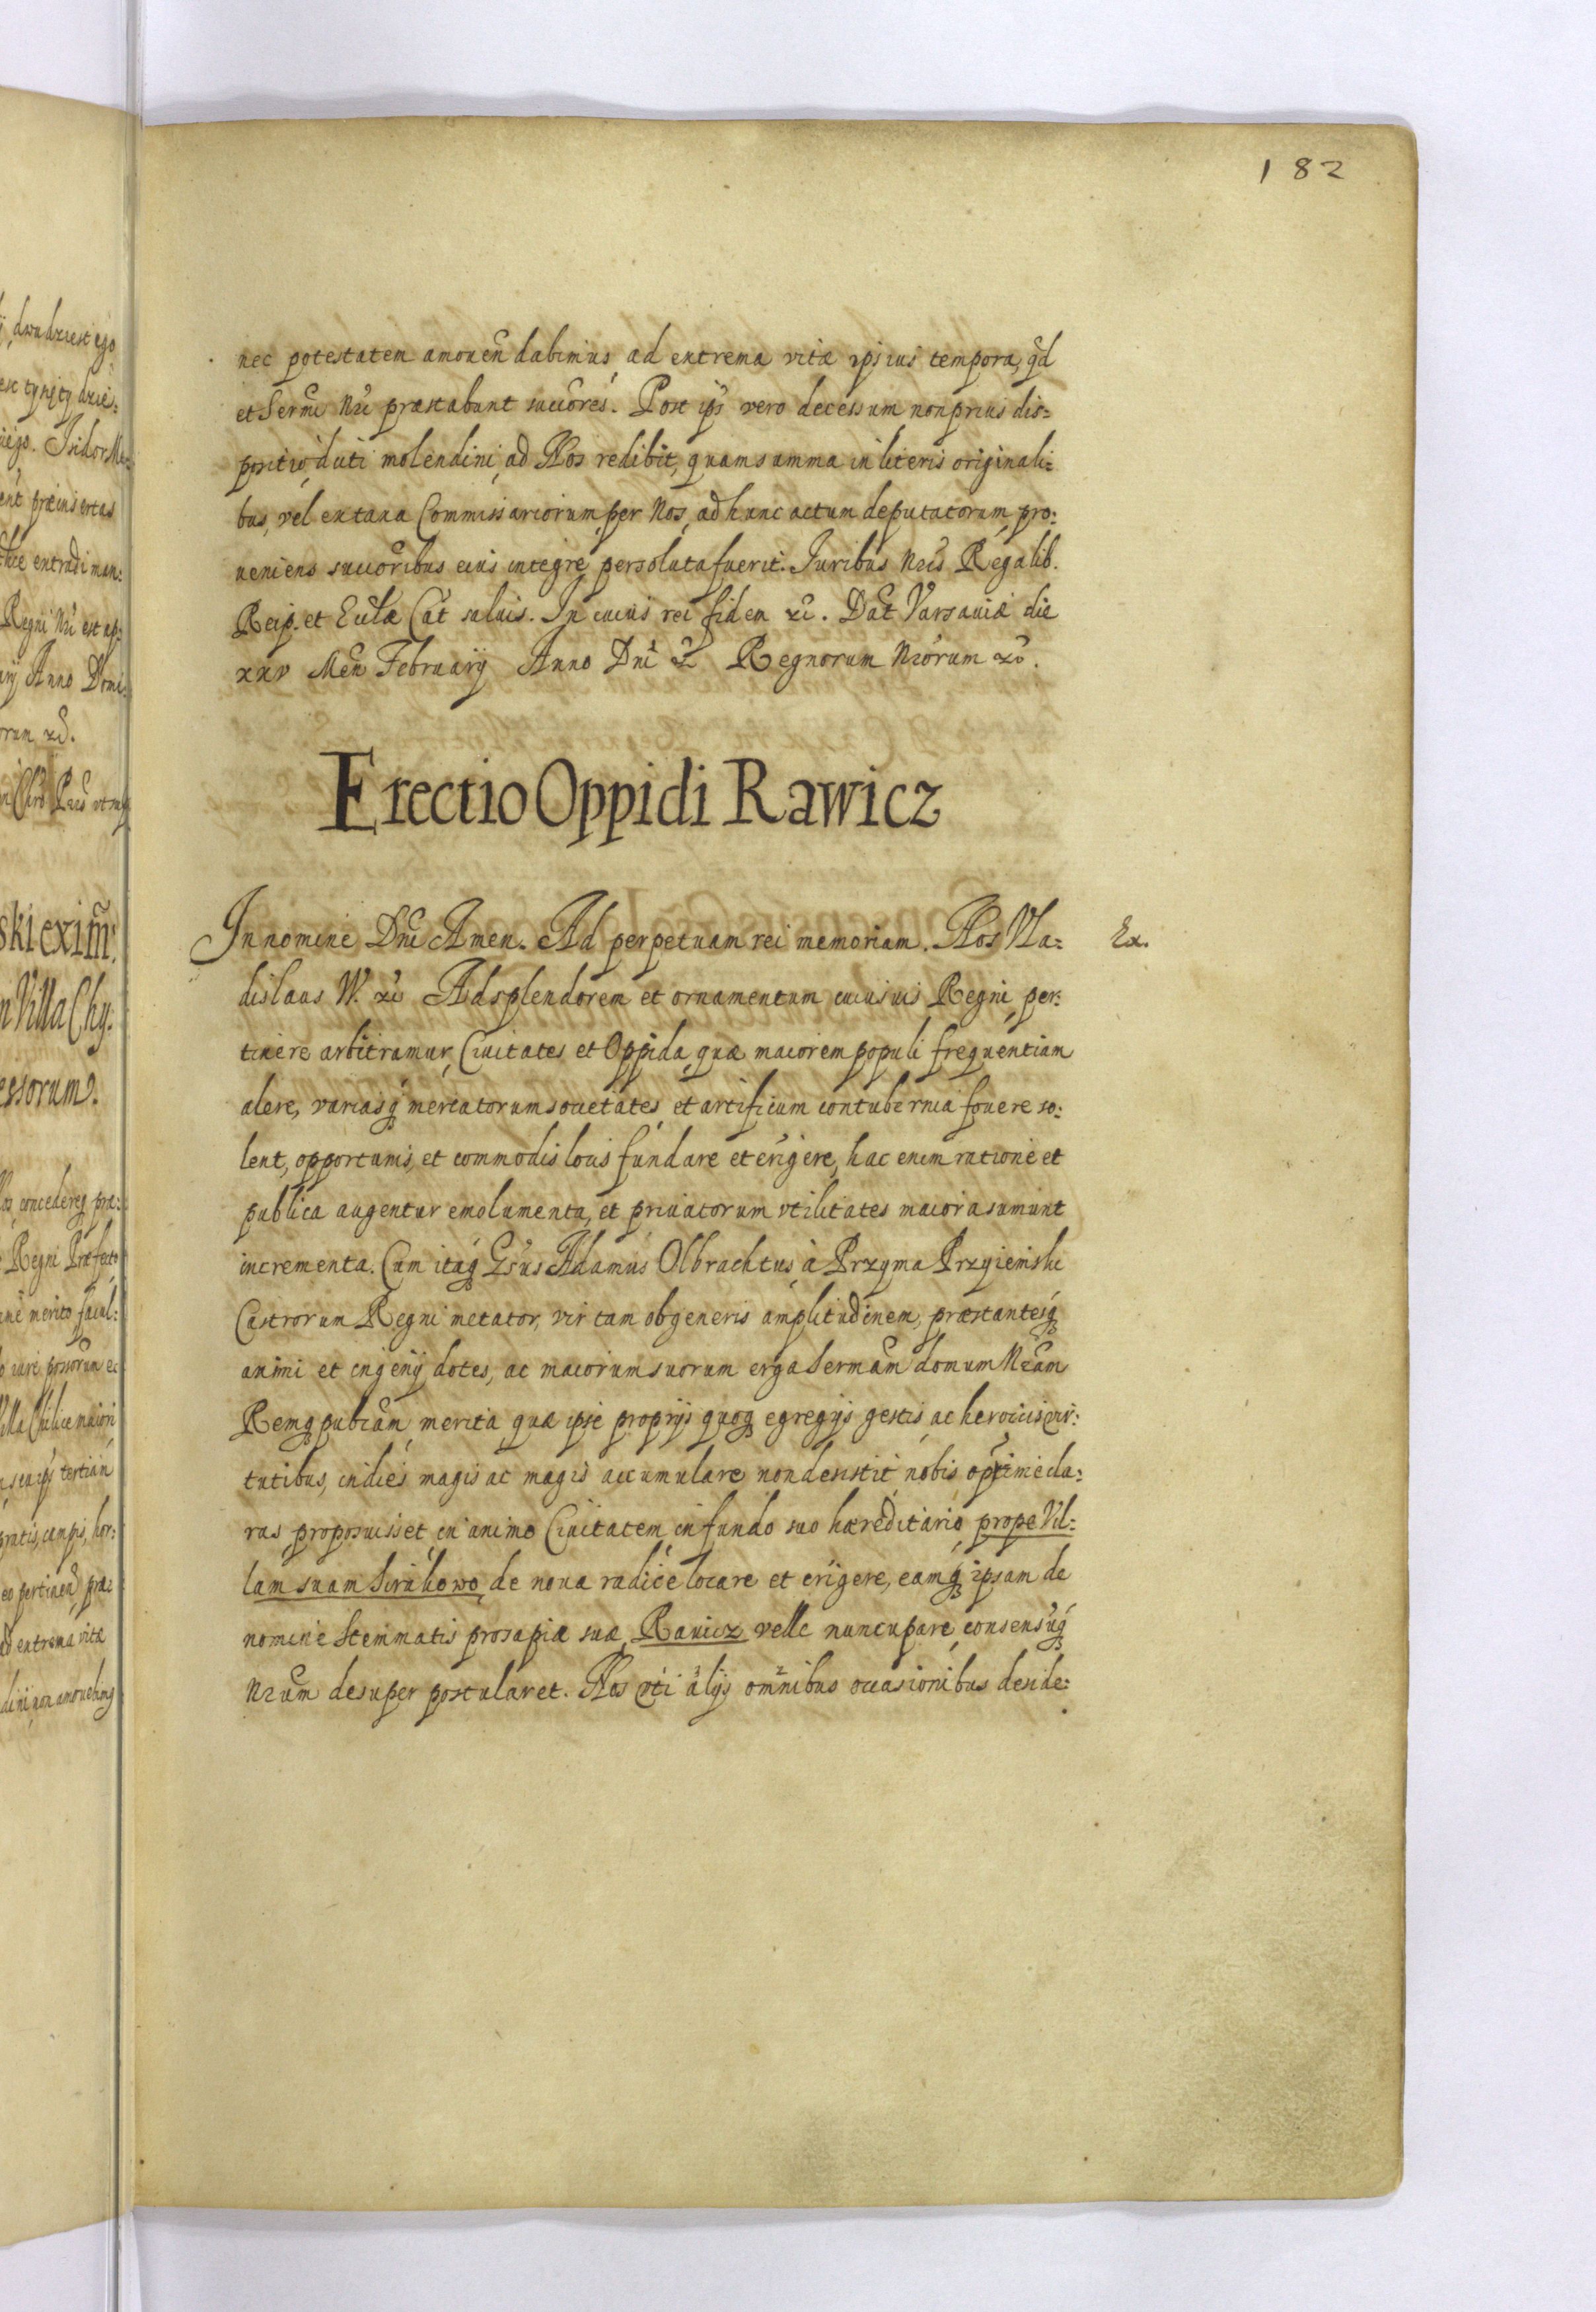 182
nec potestatem amouen̄ dabimus, ad extrema vitæ ipsius tempora, qd
et Sermi Nri præstabunt succores. Post ips vero decessum non prius dis=
positio dicti molendini, ad Nos redibit, quam summa in literis originali=
bus, vel ex taxa Commissariorum, per Nos, ad hunc actum deputatorum, pro=
ueniens succoribus eius integre persoluta fuerit. Juribus Nris Regalib.
Reip. et Ecclæ Cat saluis. In cuius rei fidem &c. Dat Varsauiæ die
xxv Men Februarij Anno Dni & Regnorum Nrorum &c.
Erectio Oppidi Rawicz
In nomine Dni Amen. Ad perpetuam rei memoriam. Nos Vla=
Ex.
dislaus W. &c Ad splendorem et ornamentum cuiusuis Regni, per=
tinere arbitramur, Ciuitates et Oppida, quæ maiorem populi frequentiam
alere, variasq mercatorum societates, et artificum contubernia fouere so=
lent, opportunis, et commodis locis fundare et erigere, hac enim ratione et
publica augentur emolumenta, et priuatorum vtilitates maiora sumunt
incrementa. Cum itaq Gsus Adamus Olbrachtus à Przyma Przyiemski
Castrorum Regni metator, vir tam ob generis amplitudinem, præstantesq
animi et ingenij dotes, ac maiorum suorum erga Sermam domum Nram
Remq pubcam, merita, quæ ipse proprijs quoq egregijs gestis, ac heroicis vir=
tutibus, indies magis ac magis accumulare non desistit, nobis optime cla=
rus, proposuisset in animo Ciuitatem, in fundo suo hæreditario, prope Vil=
lam suam Sirakowo, de noua radice locare et erigere, eamq ipsam de
nomine Stemmatis prosapiæ suæ, Rauicz velle nuncupare, consensuq
Nrum desuper postularet. Nos vti alijs omnibus occasionibus deside=